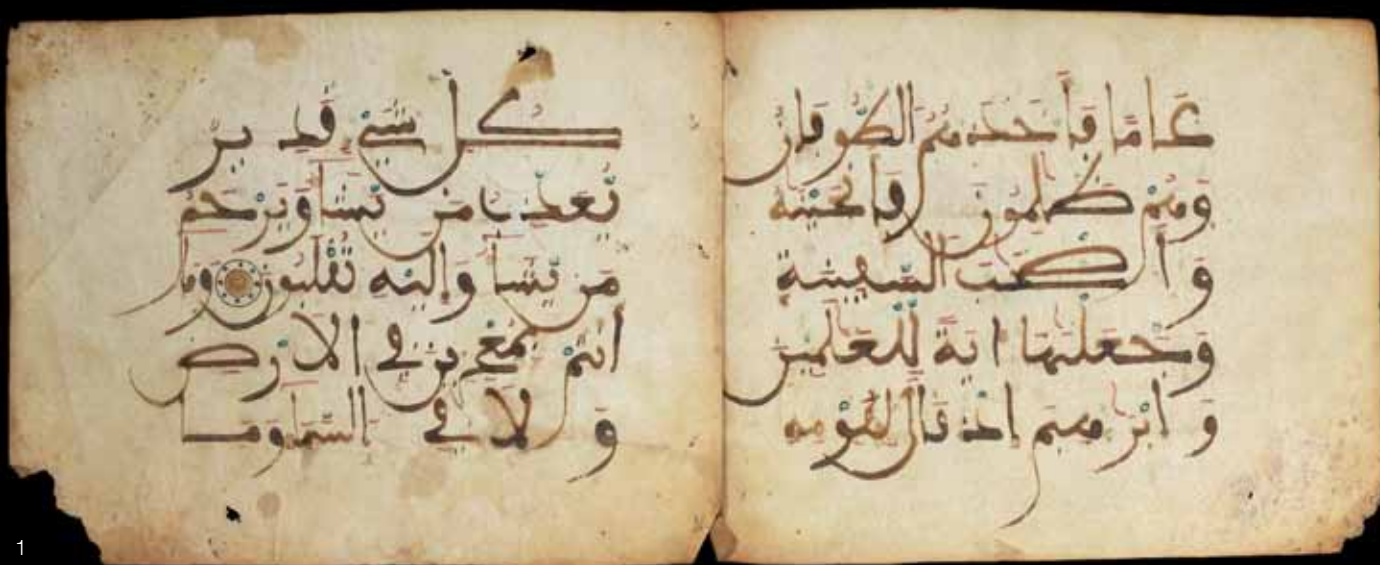 عَامًا فَأَخَذَهُمُ الطُّوفَانُ
وَهُمْ ظَٰلِمُونَ فَأَنجَيْنَٰهُ
وَأَصْحَٰبَ السَّفِينَةِ
وَجَعَلْنَٰهَا ءَايَةً لِّلْعَٰلَمِينَ
وَإِبْرَٰهِيمَ إِذْ قَالَ لِقَوْمِهِ
كُلِّ شَيْءٍ قَدِيرٌ
يُعَذِّبُ مَن يَّشَآءُ وَيَرْحَمُ
مَن يَّشَآءُ وَإِلَيْهِ تُقْلَبُونَ وَمَا
أَنتُمْ بِمُعْجِزِينَ فِي الْأَرْضِ
وَلَا فِي السَّمَآءِ وَمَا
1